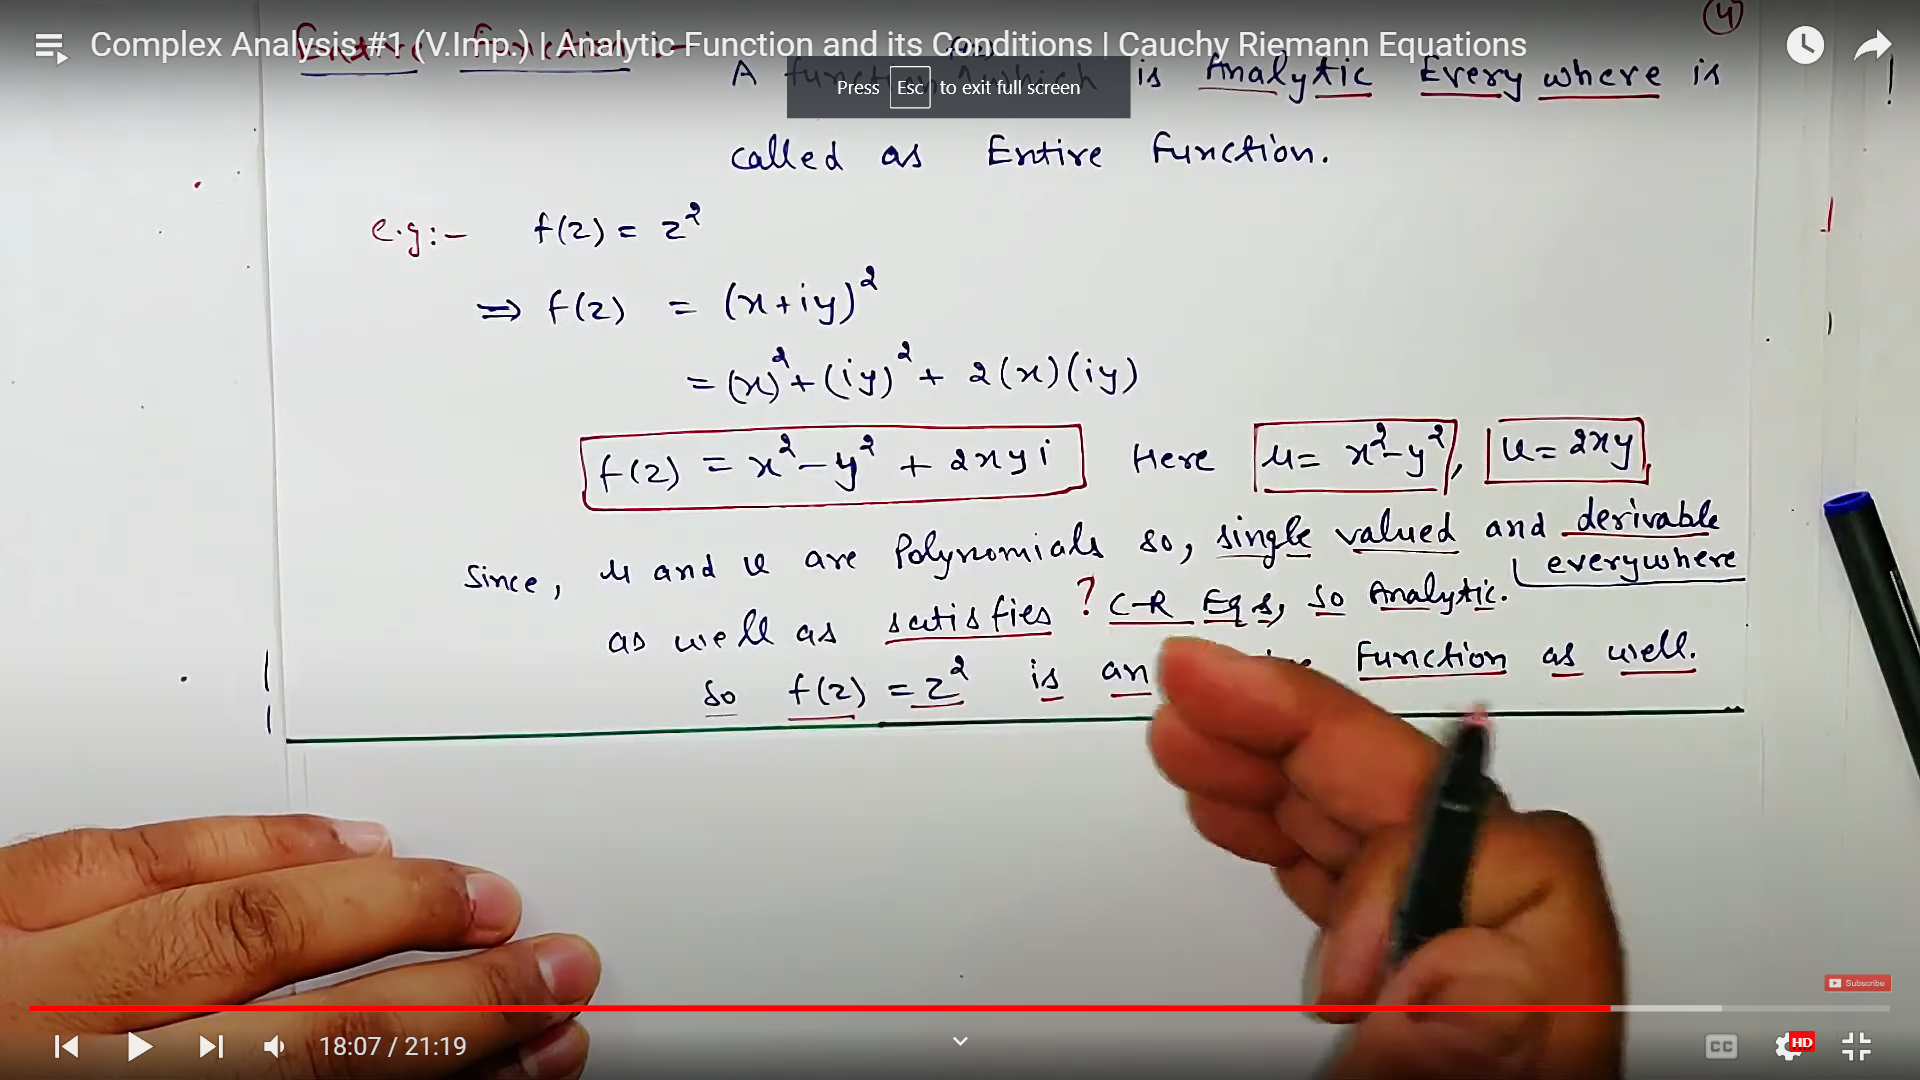 Complex Analysis #1 (V.Imp.) | Analytic Function and its Conditions | Cauchy Riemann Equations
4
Entire Function :-
A function which is Analytic Every where is
Press Esc to exit full screen
called as Entire Function.
e.g:- f(z) = z²
⇒ f(z) = (x+iy)²
= (x)² + (iy)² + 2(x)(iy)
f(z) = x² - y² + 2xyi Here u = x²-y², v = 2xy
Since, u and v are Polynomials so, single valued and derivable
everywhere
as well as satisfies ? C-R Eqs, so Analytic.
So f(z) = z² is an Function as well.
Subscribe
18:07 / 21:19
CC
HD